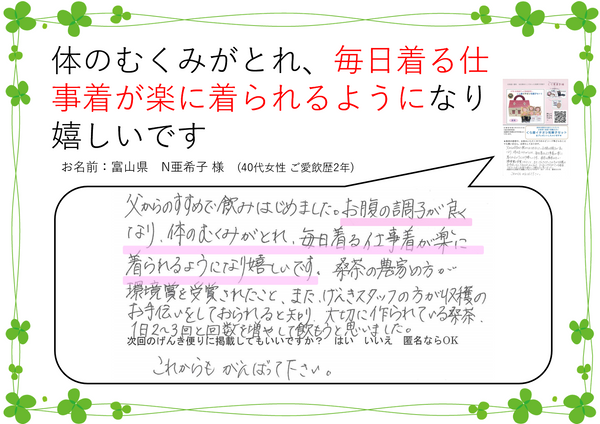 体のむくみがとれ、毎日着る仕
事着が楽に着られるようになり
嬉しいです
お名前：富山県　N亜希子 様　（40代女性 ご愛飲歴2年）
父からのすすめで飲みはじめました。お腹の調子が良く
なり、体のむくみがとれ、毎日着る仕事着が楽に
着られるようになり嬉しいです。桑茶の農家の方が
環境賞を受賞されたこと、また、げんきスタッフの方が収穫の
お手伝いをしておられると知り、大切に作られている桑茶、
1日2〜3回と回数を増やして飲もうと思いました。
次回のげんき便りに掲載してもいいですか？　はい　いいえ　匿名ならOK
これからも がんばって下さい。